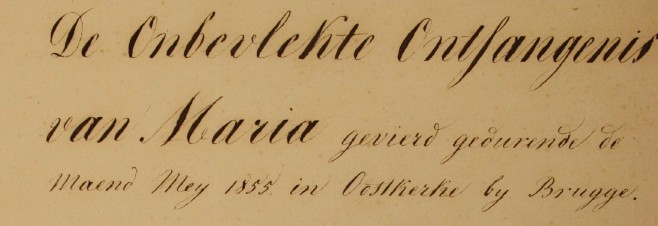 De Onbevlekte Ontfangenis
van Maria gevierd gedurende de
Maend Mey 1855 in Oostkerke by Brugge.